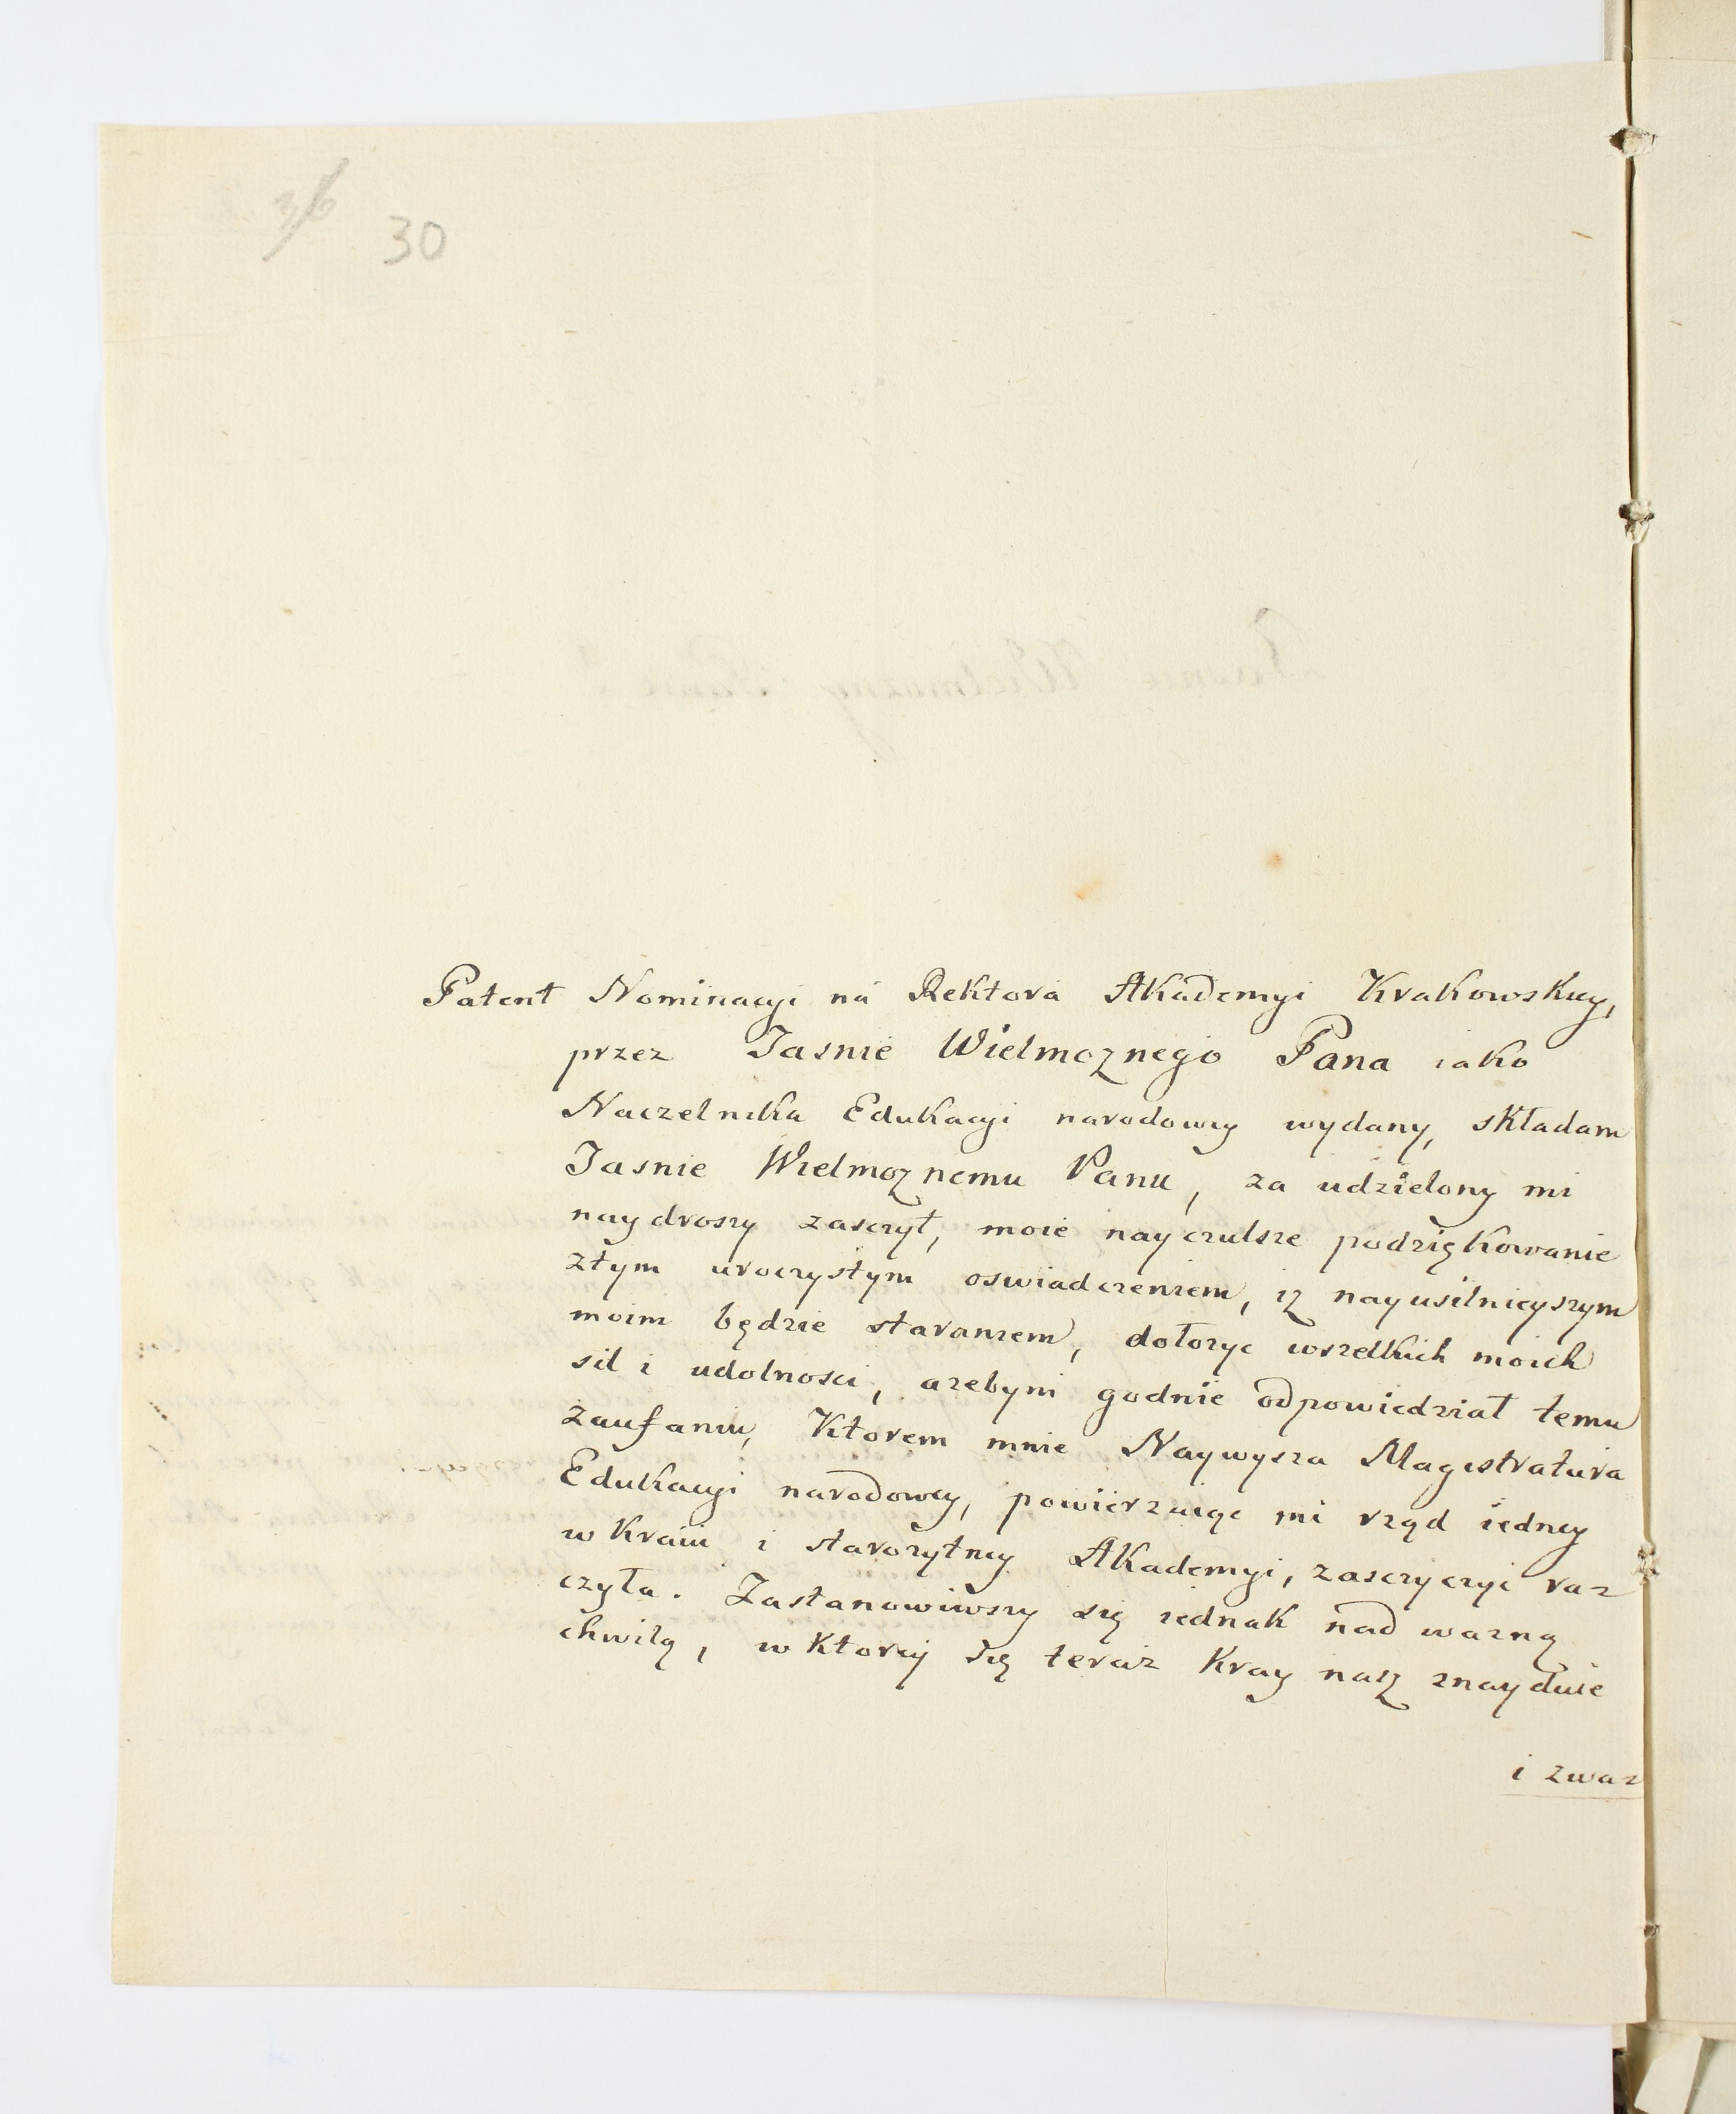 36
30
Patent Nominacyi na Rektora Akademyi Krakowskiey,
przez Jasnie Wielmoznego Pana iako
Naczelnika Edukacyi narodowey wydany, składam
Jasnie Wielmoznemu Panu, za udzielony mi
naydroszy zasczyt, moie nayczulsze podziękowanie
ztym uroczystym oswiadczeniem, iz nayusilnieyszym
moim będzie staraniem, dołozyc wszelkich moich
sil i udolnosci, azebym godnie odpowiedział temu
zaufaniu, Ktorem mnie Naywysza Magistratura
Edukacyi narodowey, powierzaiąc mi rząd iedney
w Kraiu i starozytney Akademyi, zasczyczyc raz
czyła. Zastanowiwszy się iednak nad wazną
chwilą, w Ktorey się teraz Kray nasz znayduie
i zwaz